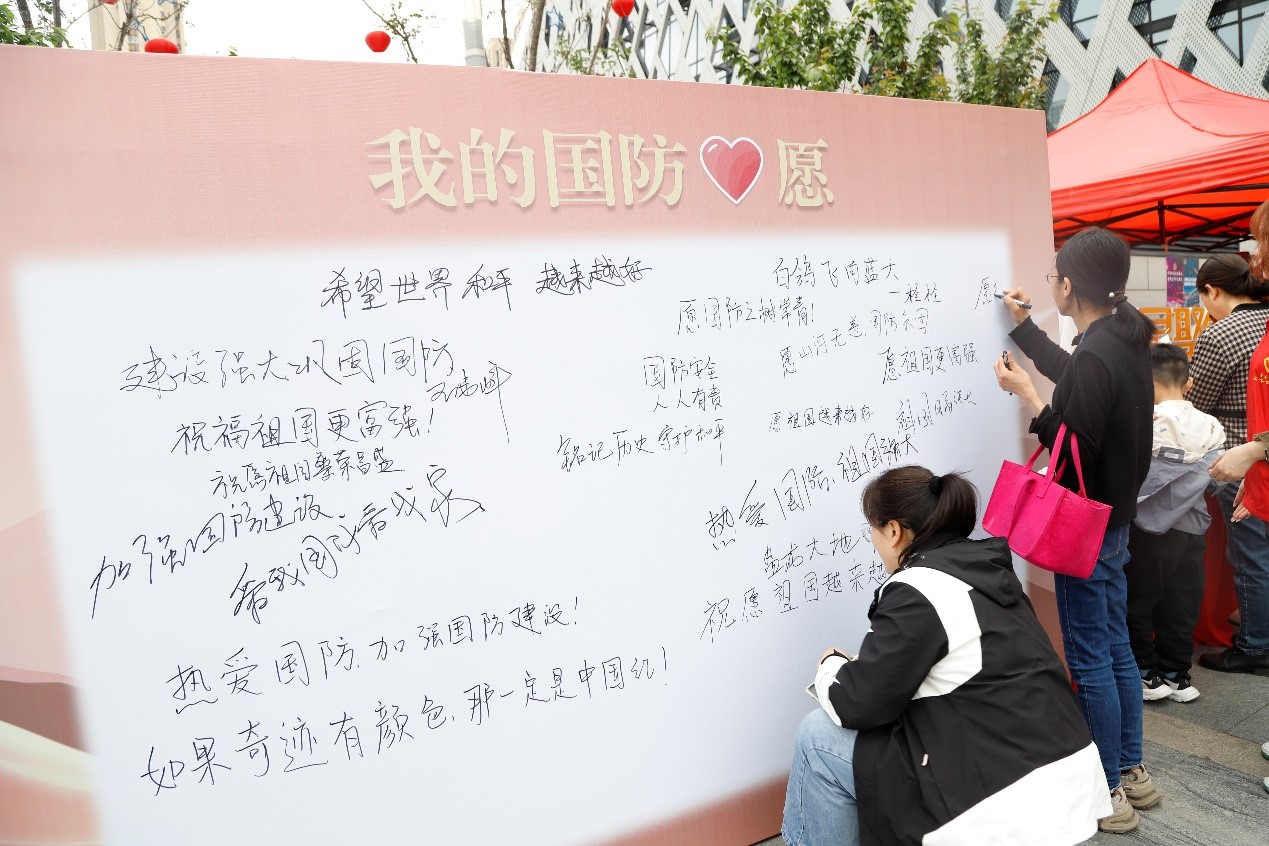 我的国防愿
希望世界和平 越来越好
建设强大巩固国防
祝福祖国更富强!
祝愿祖国繁荣昌盛
加强国防建设
热爱国防、加强国防建设!
如果奇迹有颜色、那一定是中国红!
白鸽飞向蓝天
愿国防之树常青!
愿山河无恙、国防永固
国防安全
人人有责
愿祖国更富强
愿祖国越来越好
铭记历史 守护和平
热爱国防、祖国强大
祝愿祖国越来越
愿